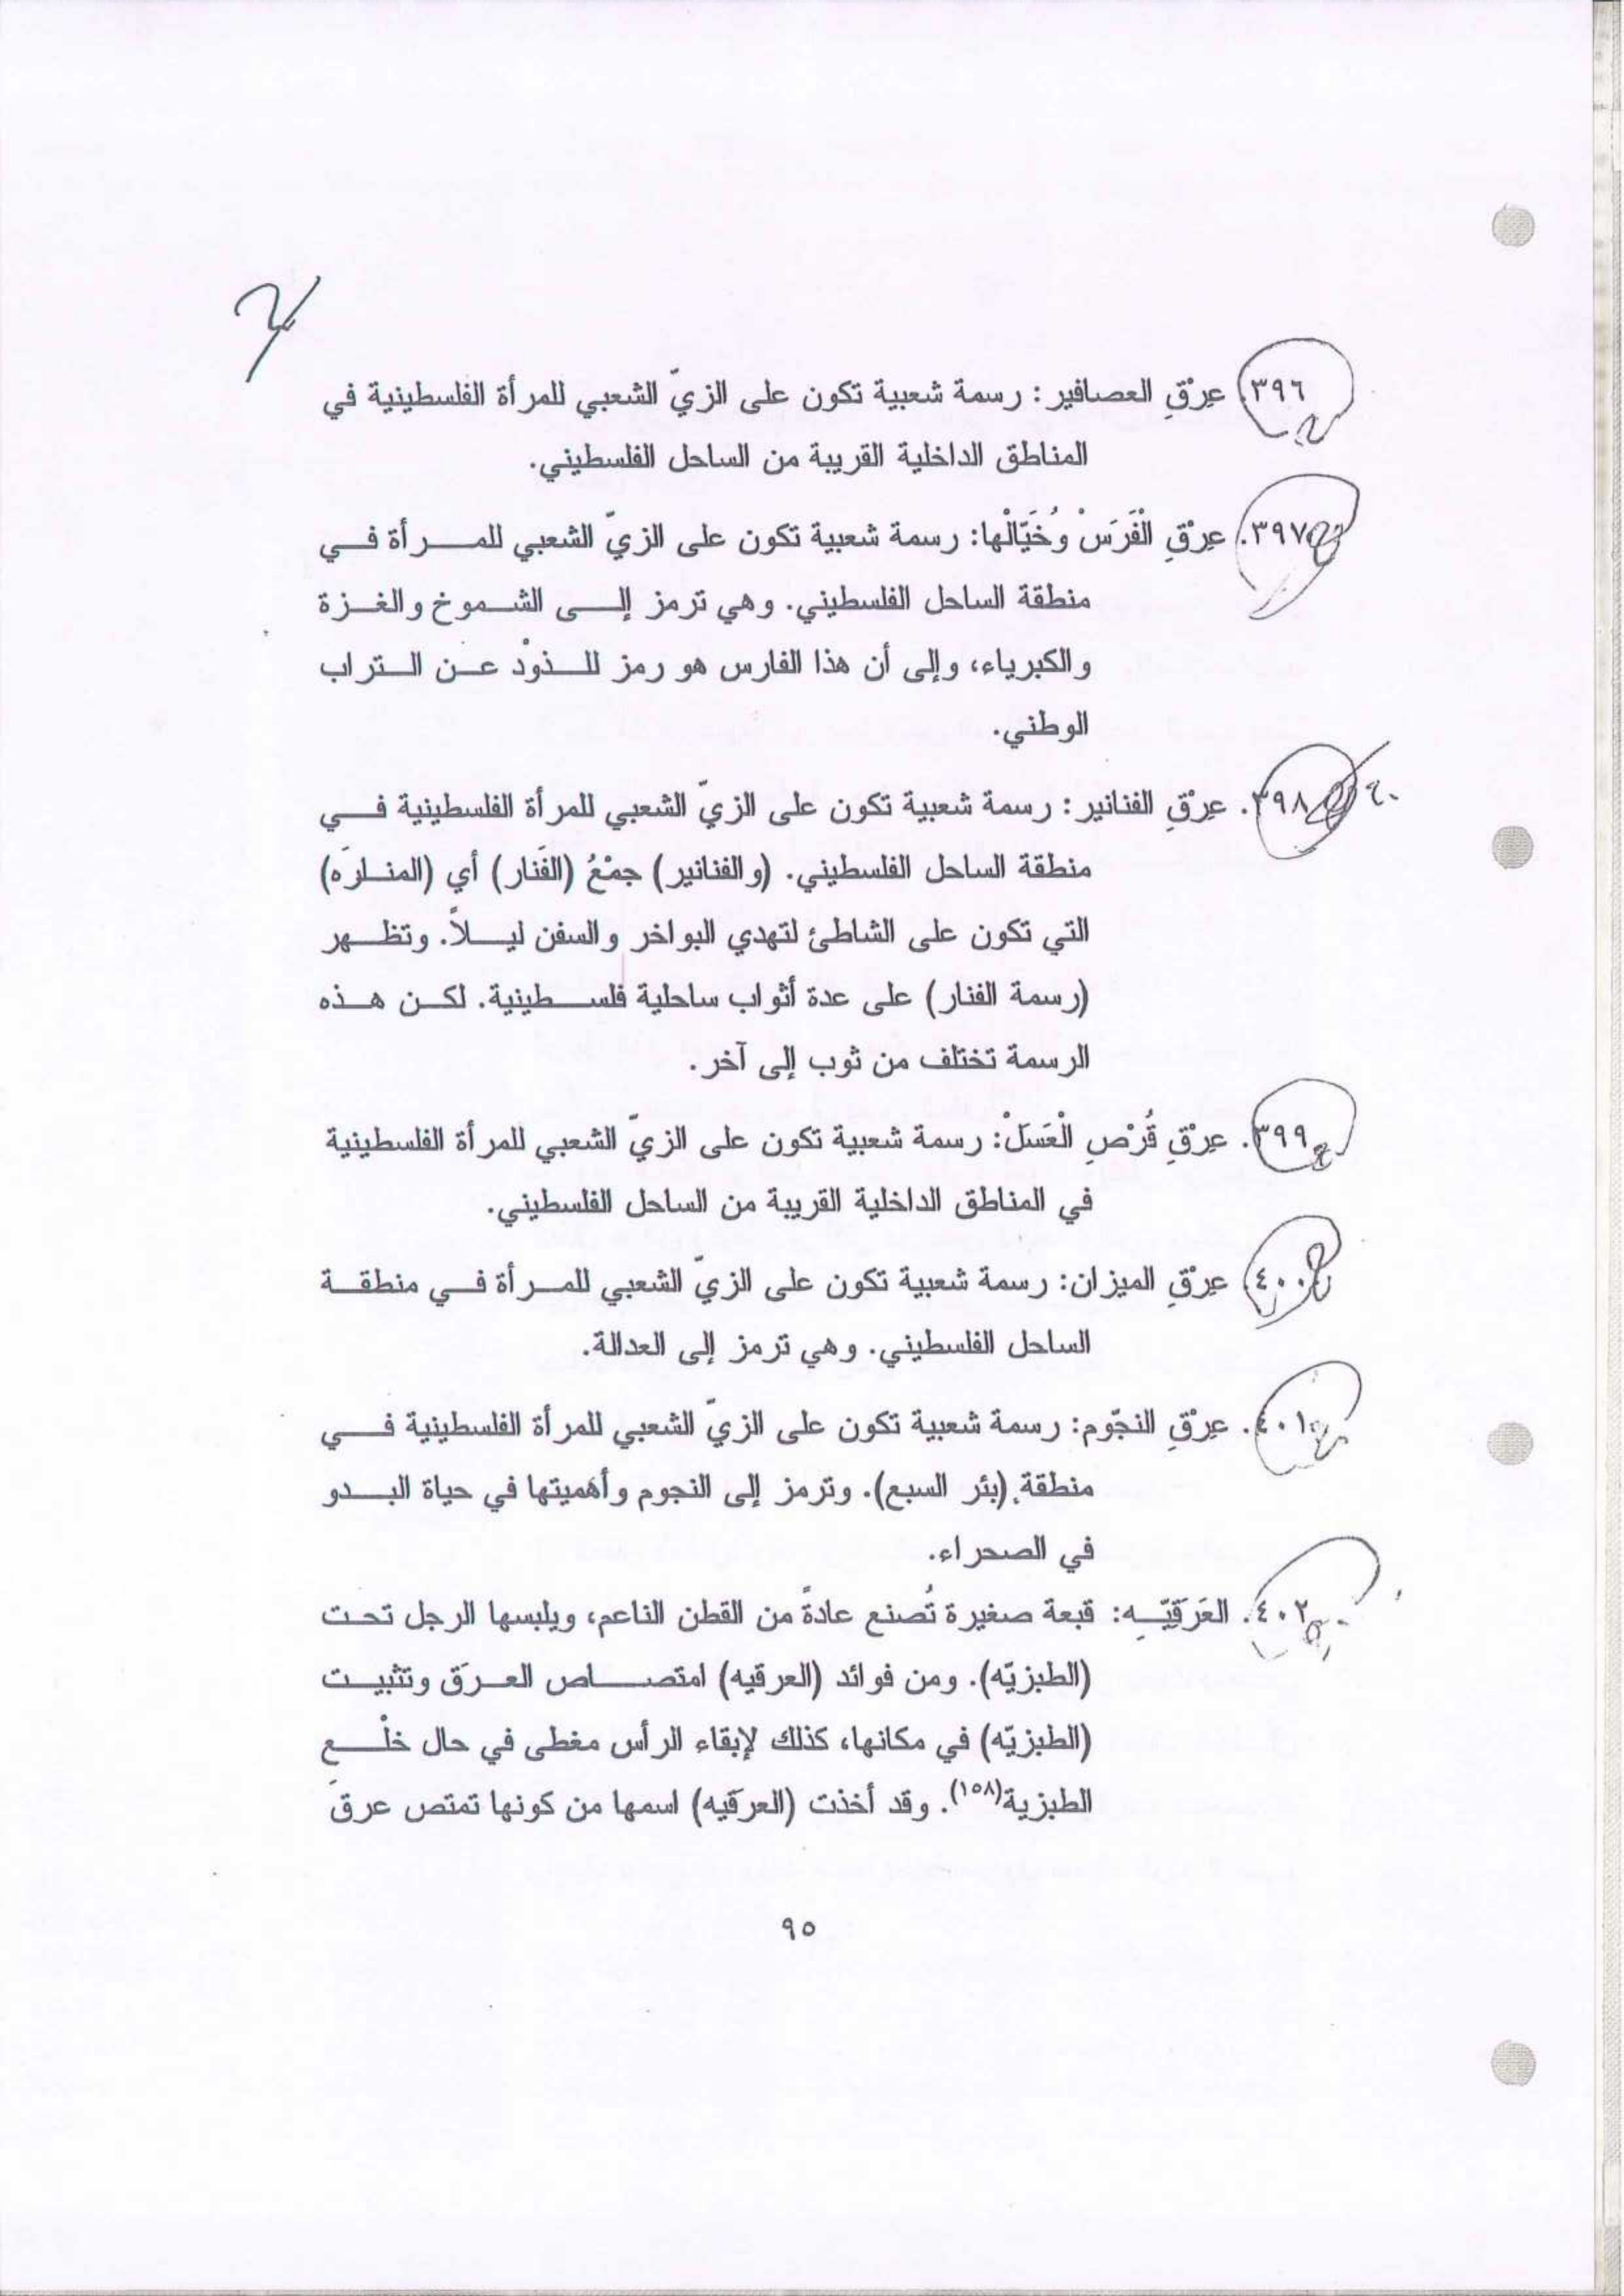 ٣٩٦. عِرْقِ العصافير: رسمة شعبية تكون على الزيّ الشعبي للمرأة الفلسطينية في
المناطق الداخلية القريبة من الساحل الفلسطيني.
٣٩٧. عِرْقِ الْفَرَسْ وُخَيّالْها: رسمة شعبية تكون على الزيّ الشعبي للمرأة في
منطقة الساحل الفلسطيني. وهي ترمز إلى الشموخ والغزة
والكبرياء، وإلى أن هذا الفارس هو رمز للذوْد عن التراب
الوطني.
٣٩٨. عِرْقِ الفنانير: رسمة شعبية تكون على الزيّ الشعبي للمرأة الفلسطينية في
منطقة الساحل الفلسطيني. (والفنانير) جمْعُ (الفَنار) أي (المنارَه)
التي تكون على الشاطئ لتهدي البواخر والسفن ليلاً. وتظهر
(رسمة الفنار) على عدة أثواب ساحلية فلسطينية. لكن هذه
الرسمة تختلف من ثوب إلى آخر.
٣٩٩. عِرْقِ قُرْصِ الْعَسَلْ: رسمة شعبية تكون على الزيّ الشعبي للمرأة الفلسطينية
في المناطق الداخلية القريبة من الساحل الفلسطيني.
٤٠٠. عِرْقِ الميزان: رسمة شعبية تكون على الزيّ الشعبي للمرأة في منطقة
الساحل الفلسطيني. وهي ترمز إلى العدالة.
٤٠١. عِرْقِ النجّوم: رسمة شعبية تكون على الزيّ الشعبي للمرأة الفلسطينية في
منطقة (بئر السبع). وترمز إلى النجوم وأهميتها في حياة البدو
في الصحراء.
٤٠٢. العَرَقِيّهِ: قبعة صغيرة تُصنع عادةً من القطن الناعم، ويلبسها الرجل تحت
(الطبزيّه). ومن فوائد (العرقيه) امتصاص العرَق وتثبيت
(الطبزيّه) في مكانها، كذلك لإبقاء الرأس مغطى في حال خلْع
الطبزية(١٥٨). وقد أخذت (العرَقيه) اسمها من كونها تمتص عرقَ
٩٥